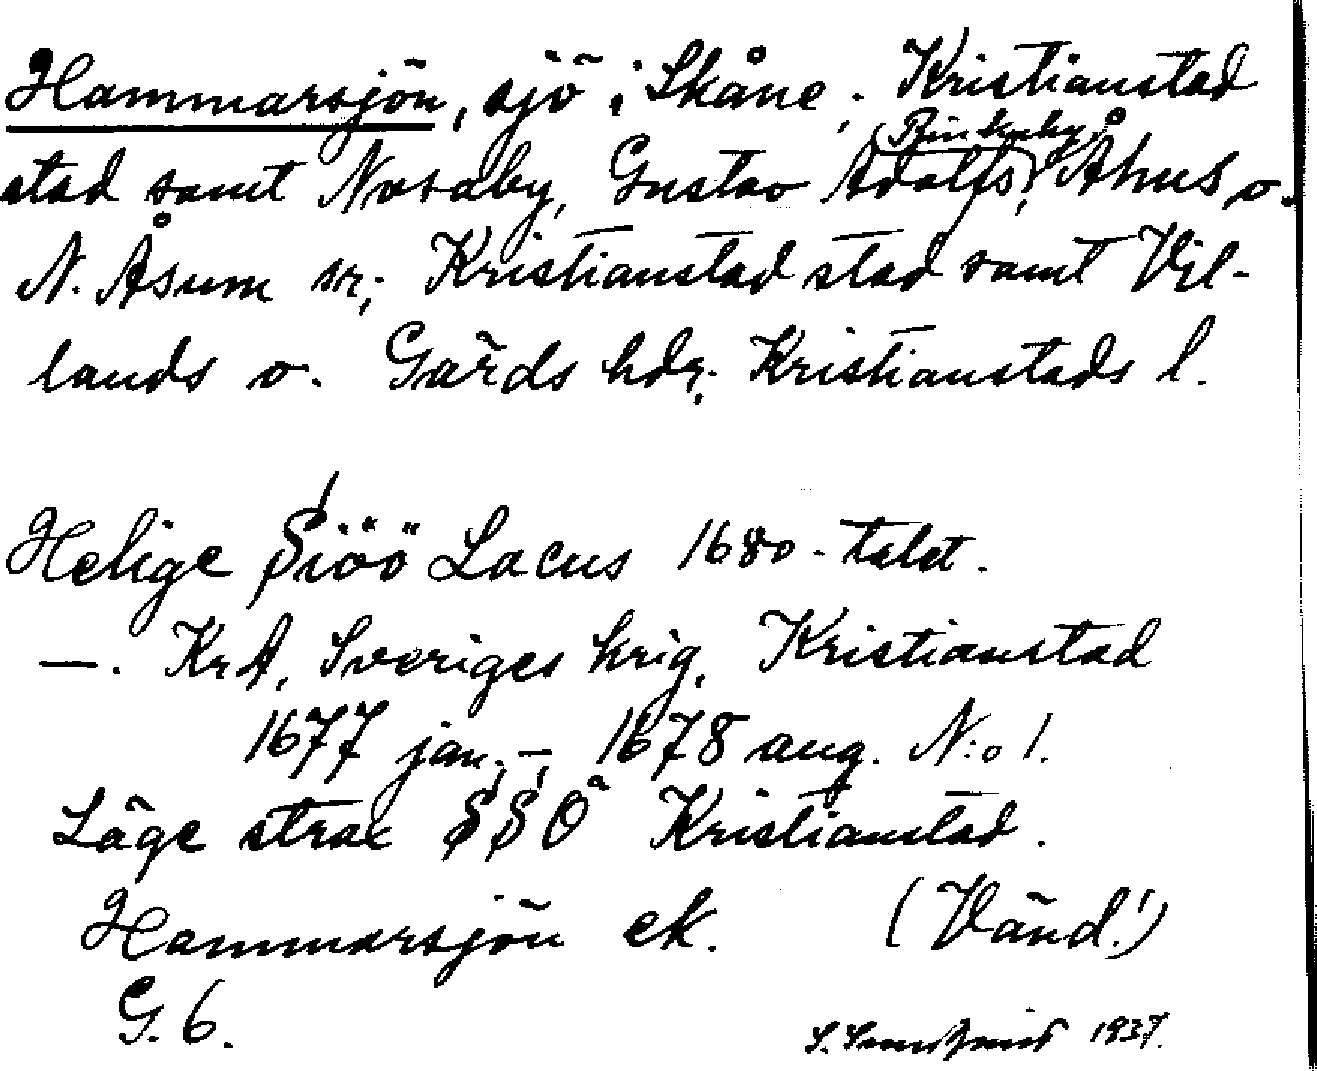 Hammarsjön, sjö i Skåne; Kristianstad
Rinkaby
stad samt Nosaby, Gustav Adolfs, Åhus o.
N. Åsum snr; Kristianstad stad samt Vil-
lands o. Gärds hdr; Kristianstads l.
Helige Siöö Lacus 1680-talet.
—. KrA, Sveriges krig, Kristianstad
1677 jan. – 1678 aug. N:o 1.
Läge strax SSÖ Kristianstad.
Hammarsjön ek. (Vänd!)
G. 6.
1937.